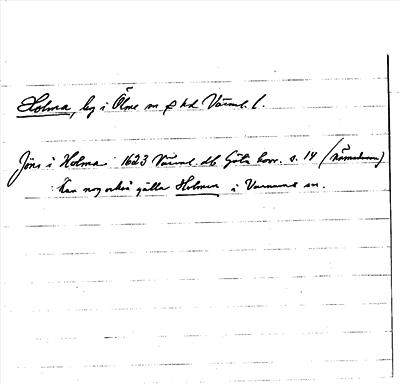 Holma, by i Ölme sn o hd Värml. l.
Jöns i Holma 1623 Värml. db Göta hovr. s. 14 (nämndeman)
kan nog också gälla Holmen i Varnums sn.